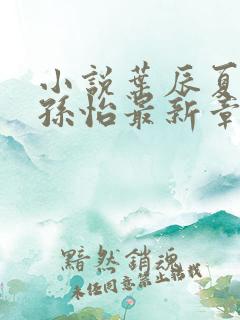 小說葉辰夏
孫怡最新章
黯然銷魂
未任同意禁止轉載